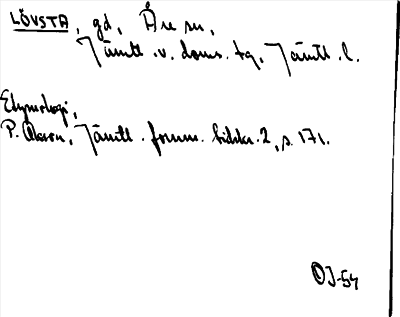 LÖVSTA, gd, Åre sn,
Jämtl. v. doms. tg, Jämtl. l.
Etymologi,
P. Olsson, Jämtl. fornm. tidskr. 2, s. 171.
OJ-54